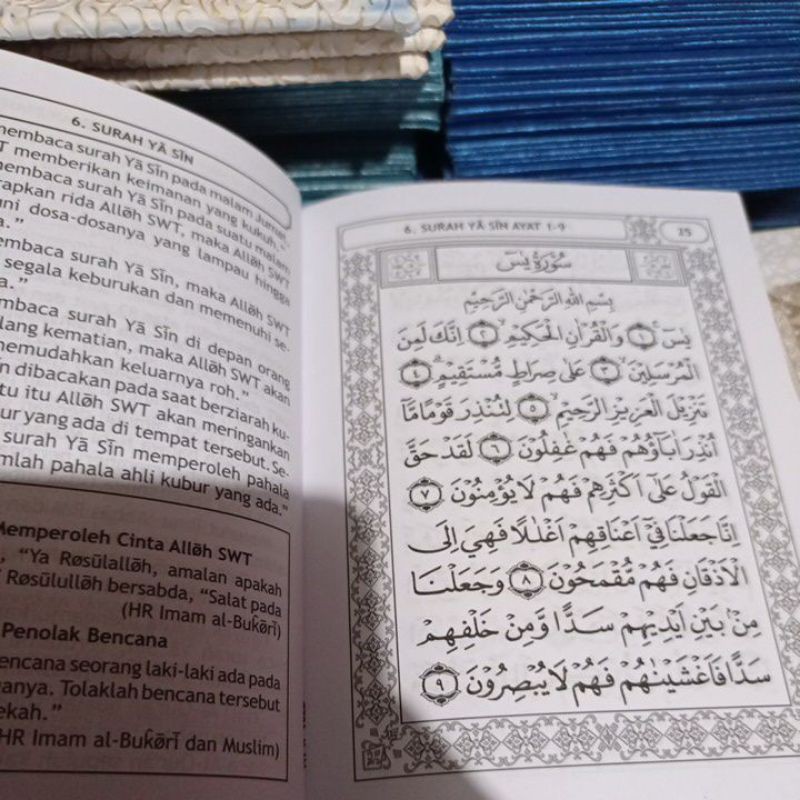 6. SURAH YĀ SĪN
membaca surah Yā Sīn pada malam Jumat
T memberikan keimanan yang kukuh."
membaca surah Yā Sīn pada suatu malam
arapkan rida Allōh SWT, maka Allōh SWT
uni dosa-dosanya yang lampau hingga
a."
embaca surah Yā Sīn, maka Allōh SWT
segala keburukan dan memenuhi se-
a."
mbaca surah Yā Sīn di depan orang
lang kematian, maka Allōh SWT akan
memudahkan keluarnya roh."
n dibacakan pada saat berziarah ku-
tu itu Allōh SWT akan meringankan
ur yang ada di tempat tersebut. Se-
surah Yā Sīn memperoleh pahala
mlah pahala ahli kubur yang ada."
Memperoleh Cinta Allōh SWT
, "Ya Røsūlallōh, amalan apakah
Røsūlullōh bersabda, "Salat pada
(HR Imam al-Buƙōrī)
Penolak Bencana
encana seorang laki-laki ada pada
ganya. Tolaklah bencana tersebut
ekah."
(HR Imam al-Buƙōrī dan Muslim)
6. SURAH YĀ SĪN AYAT 1-9
25
سُوْرَةُ يٰسٓ
بِسْمِ اللّٰهِ الرَّحْمٰنِ الرَّحِيْمِ
يٰسٓ ۝١ وَالْقُرْاٰنِ الْحَكِيْمِۙ ۝٢ اِنَّكَ لَمِنَ
الْمُرْسَلِيْنَۙ ۝٣ عَلٰى صِرَاطٍ مُّسْتَقِيْمٍۗ ۝٤
تَنْزِيْلَ الْعَزِيْزِ الرَّحِيْمِۙ ۝٥ لِتُنْذِرَ قَوْمًا مَّآ
اُنْذِرَ اٰبَاۤؤُهُمْ فَهُمْ غٰفِلُوْنَ ۝٦ لَقَدْ حَقَّ
الْقَوْلُ عَلٰٓى اَكْثَرِهِمْ فَهُمْ لَا يُؤْمِنُوْنَ ۝٧
اِنَّا جَعَلْنَا فِيْٓ اَعْنَاقِهِمْ اَغْلٰلًا فَهِيَ اِلَى
الْاَذْقَانِ فَهُمْ مُّقْمَحُوْنَ ۝٨ وَجَعَلْنَا
مِنْۢ بَيْنِ اَيْدِيْهِمْ سَدًّا وَّمِنْ خَلْفِهِمْ
سَدًّا فَاَغْشَيْنٰهُمْ فَهُمْ لَا يُبْصِرُوْنَ ۝٩